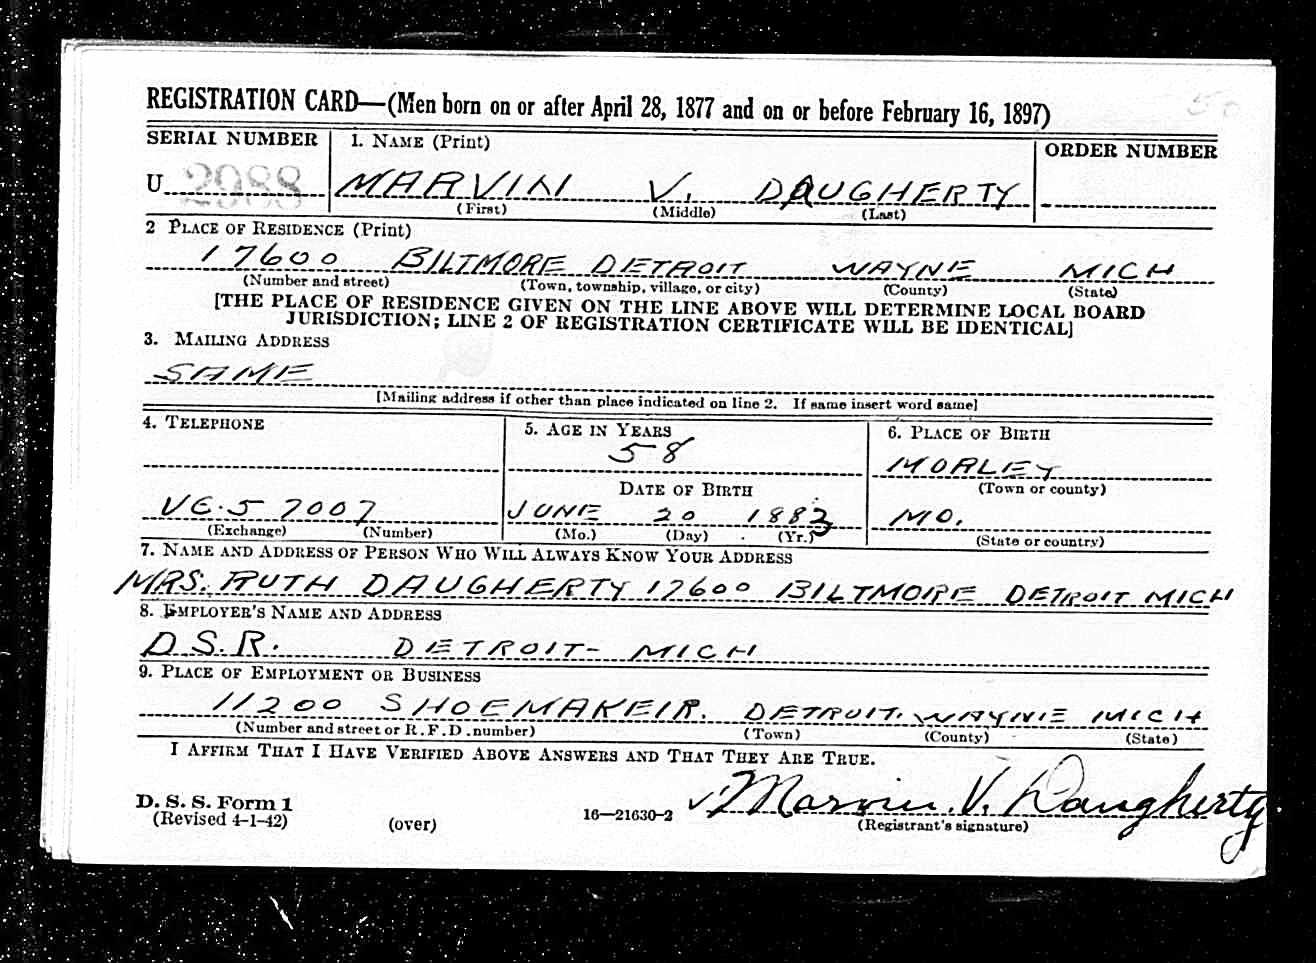 50
REGISTRATION CARD—(Men born on or after April 28, 1877 and on or before February 16, 1897)
SERIAL NUMBER 1. NAME (Print) ORDER NUMBER
U 2088 MARVIN V. DAUGHERTY
(First) (Middle) (Last)
2 PLACE OF RESIDENCE (Print)
17600 BILTMORE DETROIT WAYNE MICH
(Number and street) (Town, township, village, or city) (County) (State)
[THE PLACE OF RESIDENCE GIVEN ON THE LINE ABOVE WILL DETERMINE LOCAL BOARD
JURISDICTION; LINE 2 OF REGISTRATION CERTIFICATE WILL BE IDENTICAL]
3. MAILING ADDRESS
SAME
[Mailing address if other than place indicated on line 2. If same insert word same]
4. TELEPHONE 5. AGE IN YEARS 6. PLACE OF BIRTH
58 MORLEY
DATE OF BIRTH (Town or county)
VE.5 7007 JUNE 20 1883 MO.
(Exchange) (Number) (Mo.) (Day) (Yr.) (State or country)
7. NAME AND ADDRESS OF PERSON WHO WILL ALWAYS KNOW YOUR ADDRESS
MRS. RUTH DAUGHERTY 17600 BILTMORE DETROIT MICH
8. EMPLOYER'S NAME AND ADDRESS
D.S.R. DETROIT- MICH
9. PLACE OF EMPLOYMENT OR BUSINESS
11200 SHOEMAKER. DETROIT. WAYNE MICH
(Number and street or R. F. D. number) (Town) (County) (State)
I AFFIRM THAT I HAVE VERIFIED ABOVE ANSWERS AND THAT THEY ARE TRUE.
D. S. S. Form 1
(Revised 4-1-42) (over) 16—21630-2 Marvin. V. Daugherty
(Registrant's signature)